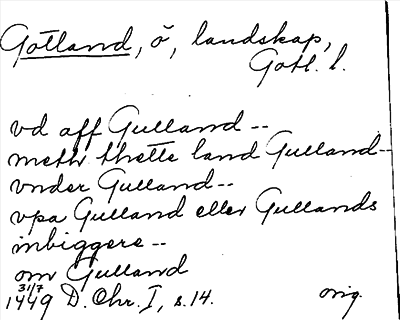 Gotland, ö, landskap,
Gotl. l.
vd aff Gulland --
meth thette land Gulland --
vnder Gulland --
vpa Gulland eller Gullands
inbiggere --
om Gulland
31/7
1449 D. Chr. I, s. 14. orig.